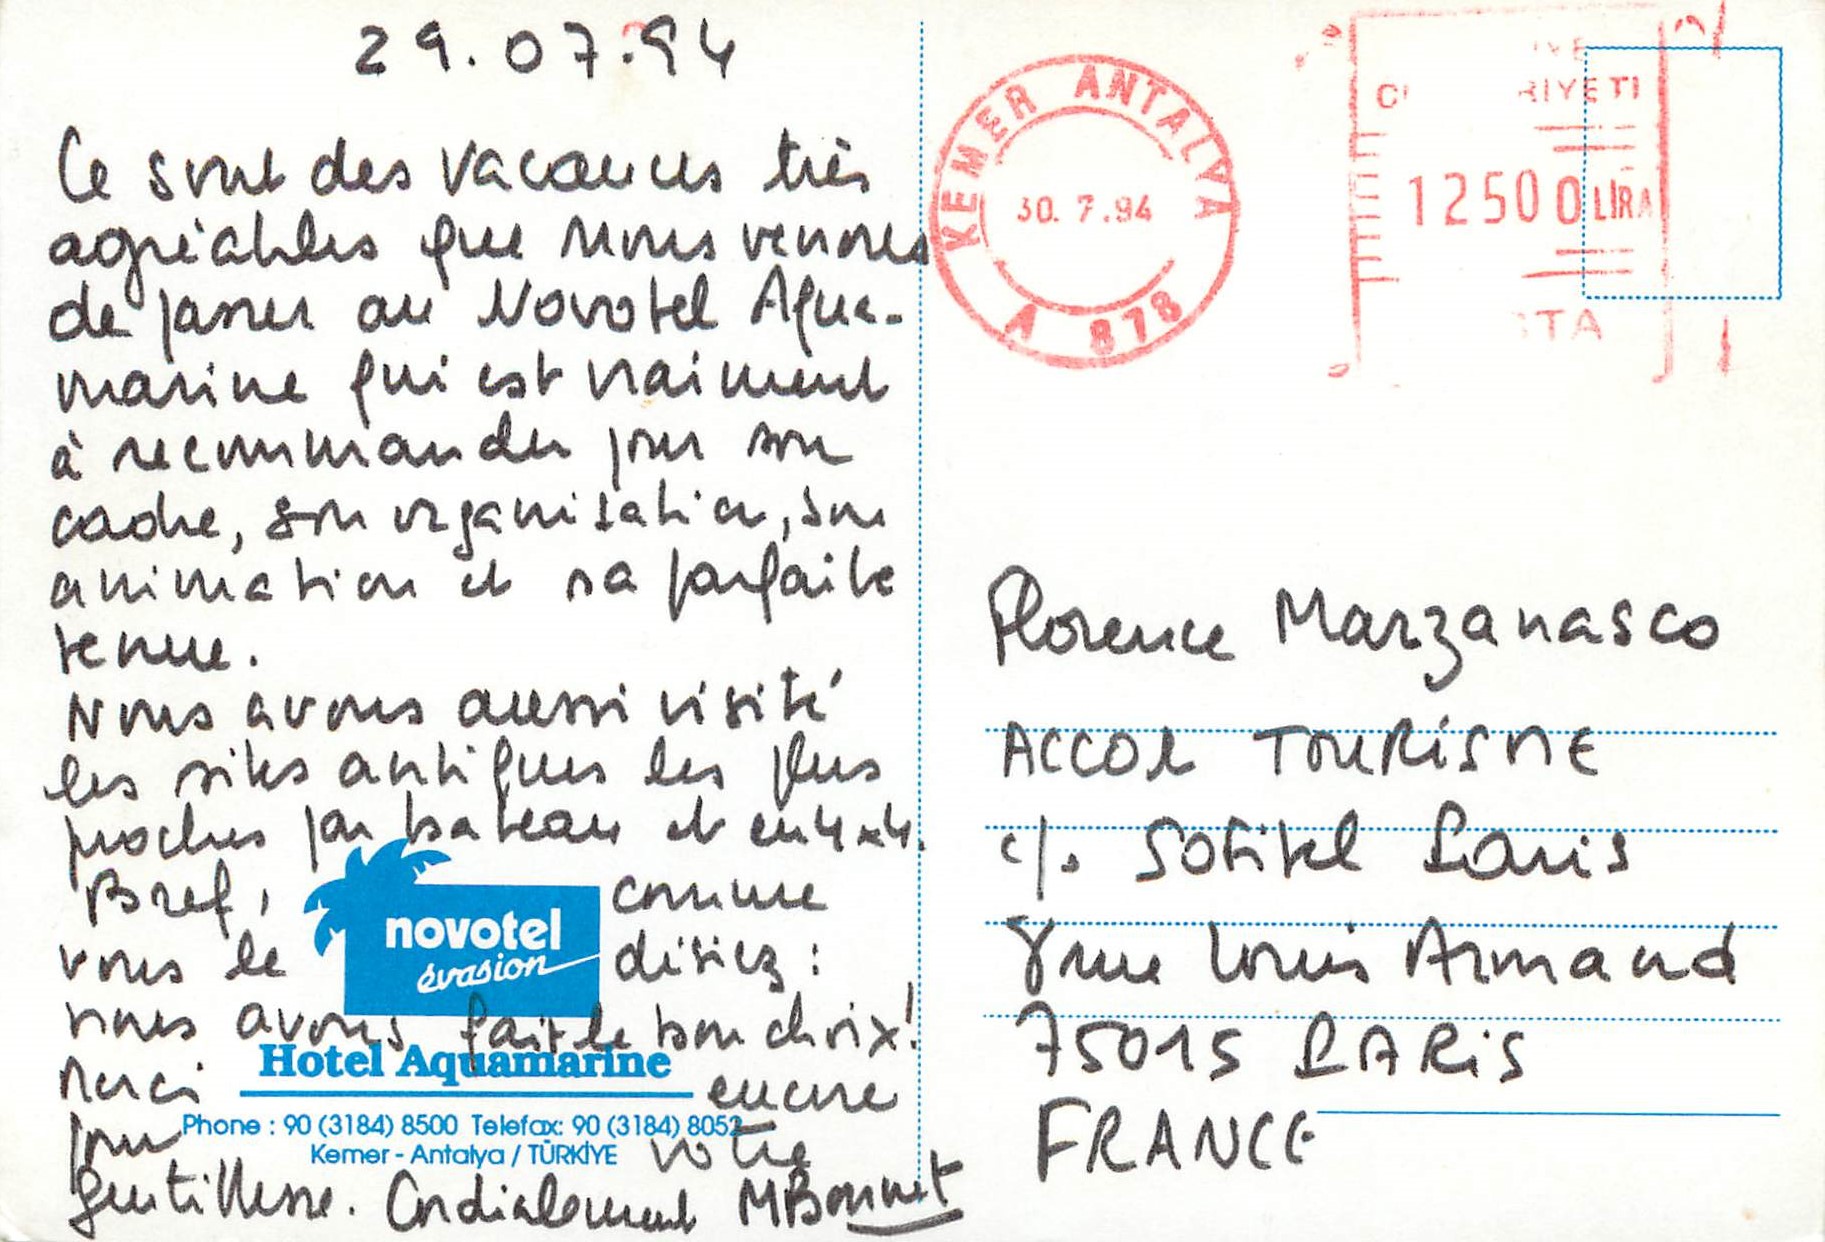 29.07.94
Ce sont des vacances très
agréables que nous venons
de passer au Novotel Aqua-
marine qui est vraiment
à recommander pour son
cadre, son organisation, son
animation et sa parfaite
tenue.
Nous avons aussi visité
les sites antiques les plus
proches par bateau et en 4x4.
Bref, comme
vous le disiez :
nous avons fait le bon choix !
Merci encore
pour votre
gentillesse. Cordialement MBonnet
novotel
évasion
Hotel Aquamarine
Phone : 90 (3184) 8500 Telefax: 90 (3184) 8052
Kemer - Antalya / TÜRKİYE
KEMER ANTALYA
30. 7.94
A 878
RIYETI
12500 LIRA
Florence Marzanasco
ACCOR TOURISME
c/o Sofitel Paris
8 rue Louis Armand
75015 PARIS
FRANCE